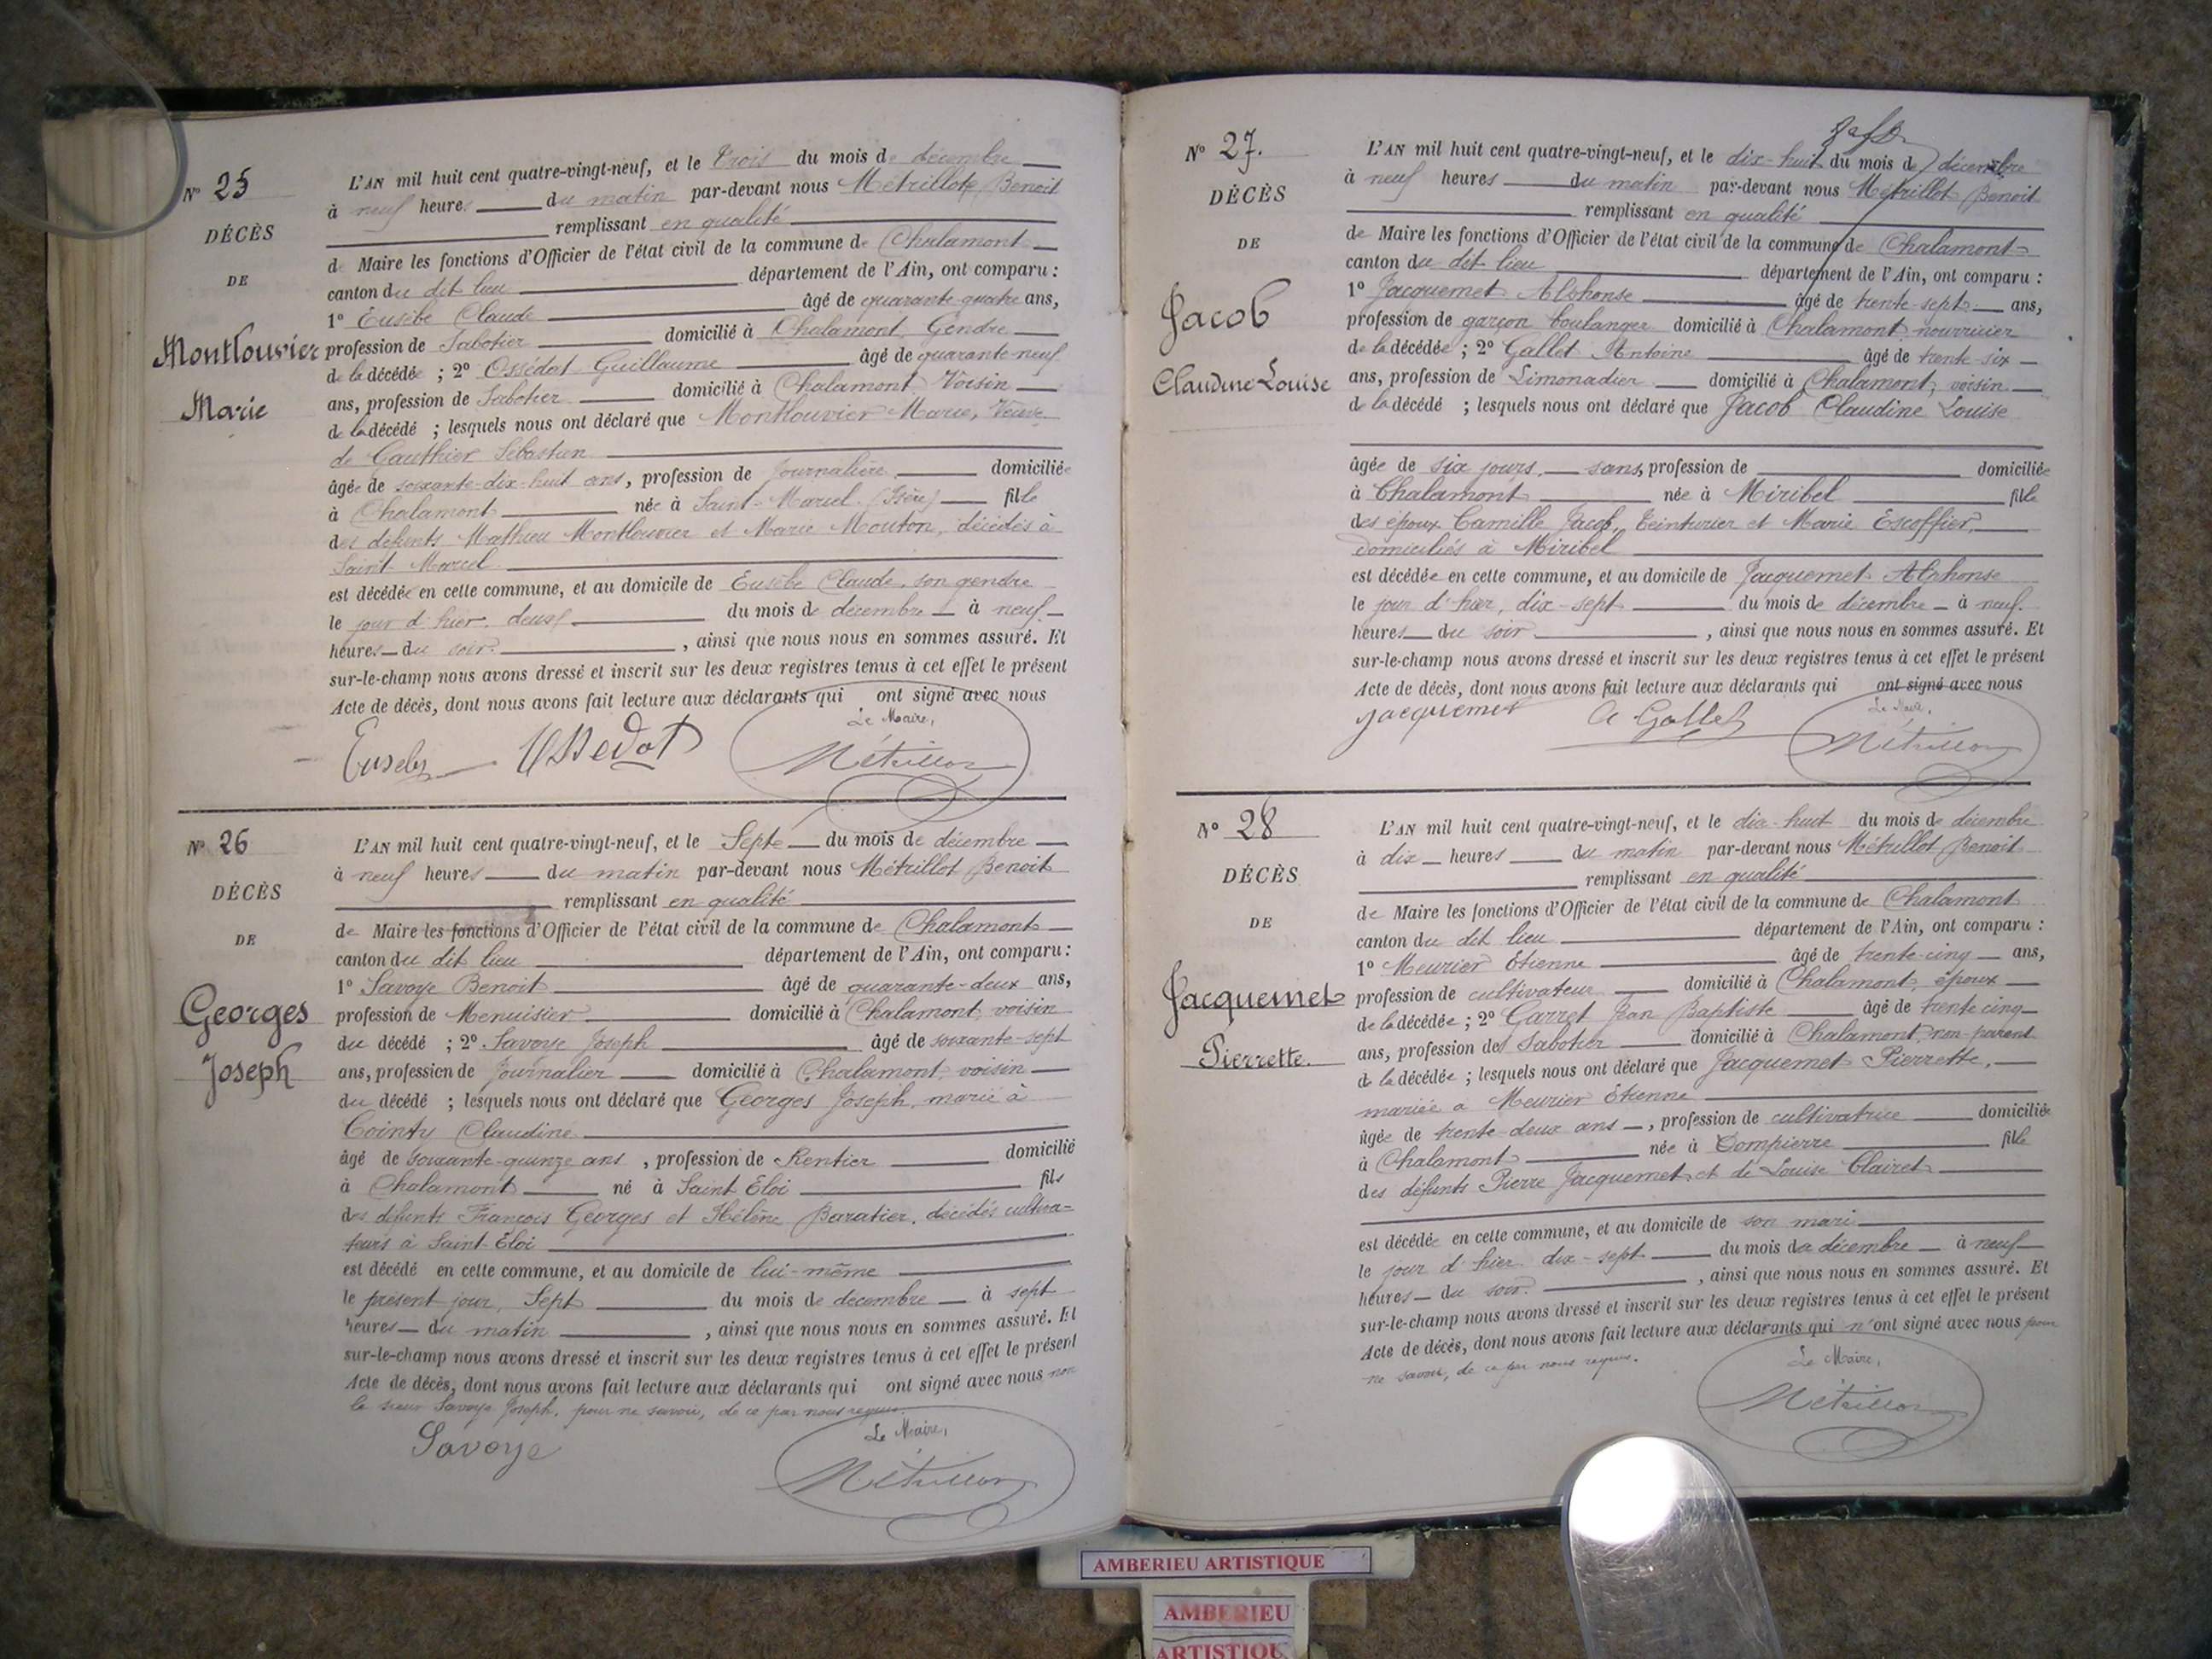 N° 25
DÉCÈS
DE
Montlouvier
Marie
L'AN mil huit cent quatre-vingt-neuf, et le trois du mois de décembre
à neuf heures du matin par-devant nous Métrillot Benoit
remplissant en qualité
de Maire les fonctions d'Officier de l'état civil de la commune de Chalamont
canton du dit lieu département de l'Ain, ont comparu :
1° Eusèbe Claude âgé de quarante-quatre ans,
profession de Sabotier domicilié à Chalamont, Gendre
de la décédée ; 2° Ossédat Guillaume âgé de quarante-neuf
ans, profession de Sabotier domicilié à Chalamont, Voisin
de la décédé ; lesquels nous ont déclaré que Montlouvier Marie, Veuve
de Gauthier Sébastien
âgée de soixante-dix-huit ans, profession de Journalière domiciliée
à Chalamont née à Saint-Marcel (Isère) fille
des défunts Mathieu Montlouvier et Marie Mouton, décédés à
Saint-Marcel
est décédée en cette commune, et au domicile de Eusèbe Claude, son gendre
le jour d'hier, deux du mois de décembre à neuf
heures du soir, ainsi que nous nous en sommes assuré. Et
sur-le-champ nous avons dressé et inscrit sur les deux registres tenus à cet effet le présent
Acte de décès, dont nous avons fait lecture aux déclarants qui ont signé avec nous
Le Maire,
Eusebe Ossedat Métrillot
N° 26
DÉCÈS
DE
Georges
Joseph
L'AN mil huit cent quatre-vingt-neuf, et le Sept du mois de décembre
à neuf heures du matin par-devant nous Métrillot Benoit
remplissant en qualité
de Maire les fonctions d'Officier de l'état civil de la commune de Chalamont
canton du dit lieu département de l'Ain, ont comparu :
1° Savoye Benoit âgé de quarante-deux ans,
profession de Menuisier domicilié à Chalamont, voisin
du décédé ; 2° Savoye Joseph âgé de soixante-sept
ans, profession de Journalier domicilié à Chalamont, voisin
du décédé ; lesquels nous ont déclaré que Georges Joseph, marié à
Cointy Claudine
âgé de soixante-quinze ans, profession de Rentier domicilié
à Chalamont né à Saint Eloi fils
des défunts François Georges et Hélène Baratier, décédés cultiva-
teurs à Saint-Eloi
est décédé en cette commune, et au domicile de lui-même
le présent jour, Sept du mois de décembre à sept
heures du matin, ainsi que nous nous en sommes assuré. Et
sur-le-champ nous avons dressé et inscrit sur les deux registres tenus à cet effet le présent
Acte de décès, dont nous avons fait lecture aux déclarants qui ont signé avec nous non
le sieur Savoye Joseph, pour ne savoir, de ce par nous requis.
Le Maire,
Savoye Métrillot
N° 27.
DÉCÈS
DE
Jacob
Claudine Louise
L'AN mil huit cent quatre-vingt-neuf, et le dix-huit du mois de décembre
à neuf heures du matin par-devant nous Métrillot Benoit
remplissant en qualité
de Maire les fonctions d'Officier de l'état civil de la commune de Chalamont
canton du dit lieu département de l'Ain, ont comparu :
1° Jacquemet Alphonse âgé de trente-sept ans,
profession de garçon boulanger domicilié à Chalamont, nourricier
de la décédée ; 2° Gallet Antoine âgé de trente-six
ans, profession de Limonadier domicilié à Chalamont, voisin
de la décédé ; lesquels nous ont déclaré que Jacob Claudine Louise
âgée de six jours, sans, profession de domiciliée
à Chalamont née à Miribel fille
des époux Camille Jacob, Teinturier et Marie Escoffier,
domiciliés à Miribel
est décédée en cette commune, et au domicile de Jacquemet Alphonse
le jour d'hier, dix-sept du mois de décembre à neuf
heures du soir, ainsi que nous nous en sommes assuré. Et
sur-le-champ nous avons dressé et inscrit sur les deux registres tenus à cet effet le présent
Acte de décès, dont nous avons fait lecture aux déclarants qui ont signé avec nous
Le Maire,
Jacquemet A Gallet Métrillot
N° 28
DÉCÈS
DE
Jacquemet
Pierrette.
L'AN mil huit cent quatre-vingt-neuf, et le dix-huit du mois de décembre
à dix heures du matin par-devant nous Métrillot Benoit
remplissant en qualité
de Maire les fonctions d'Officier de l'état civil de la commune de Chalamont
canton du dit lieu département de l'Ain, ont comparu :
1° Meurier Etienne âgé de trente-cinq ans,
profession de cultivateur domicilié à Chalamont, époux
de la décédée ; 2° Garret Jean Baptiste âgé de trente cinq
ans, profession de Sabotier domicilié à Chalamont, non-parent
de la décédée ; lesquels nous ont déclaré que Jacquemet Pierrette,
mariée à Meurier Etienne
âgée de trente-deux ans, profession de cultivatrice domiciliée
à Chalamont née à Dompierre fille
des défunts Pierre Jacquemet et de Louise Clairet
est décédée en cette commune, et au domicile de son mari
le jour d'hier dix-sept du mois de décembre à neuf
heures du soir, ainsi que nous nous en sommes assuré. Et
sur-le-champ nous avons dressé et inscrit sur les deux registres tenus à cet effet le présent
Acte de décès, dont nous avons fait lecture aux déclarants qui n'ont signé avec nous pour
ne savoir, de ce par nous requis.
Le Maire,
Métrillot
AMBERIEU ARTISTIQUE
AMBERIEU
ARTISTIQU